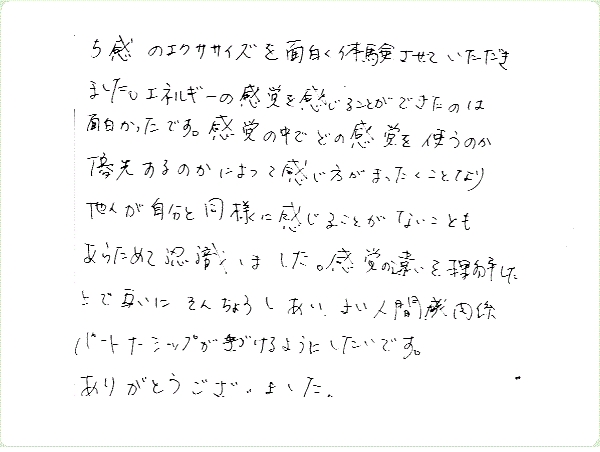 5感のエクササイズを面白く体験させていただき
ました。エネルギーの感覚を感じることができたのは
面白かったです。感覚の中でどの感覚を使うのか
優先あるのかによって感じ方がまったくことなり
他人が自分と同様に感じることがないことも
あらためて認識しました。感覚の違いを理解した
上で互いにそんちょうしあい、よい人間関係
パートナーシップが築けるようにしたいです。
ありがとうございました。